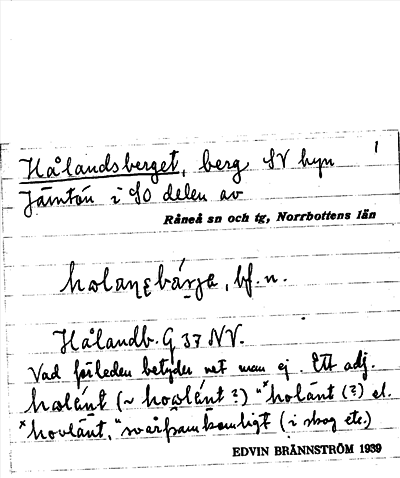 1
Hålandsberget, berg SV byn
Jämtön i SO delen av
Råneå sn och tg, Norrbottens län
hɷlaŋɛbárjɛ, bf. n.
Hålandb. G 37 NV.
Vad förleden betyder vet man ej. Ett adj.
hɷlánt (~ hoɷlánt ?) "*holánt (?) el.
*hovlänt, "svårframkomligt (i skog etc.)
EDVIN BRÄNNSTRÖM 1939